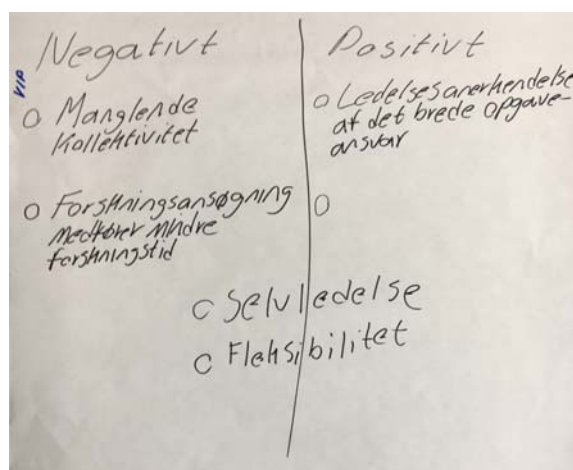 VIP
Negativt
o Manglende
Kollektivitet
o Forskningsansøgning
medfører mindre
forskningstid
Positivt
o Ledelsesanerkendelse
af det brede opgave-
ansvar
o
o Selvledelse
o Fleksibilitet